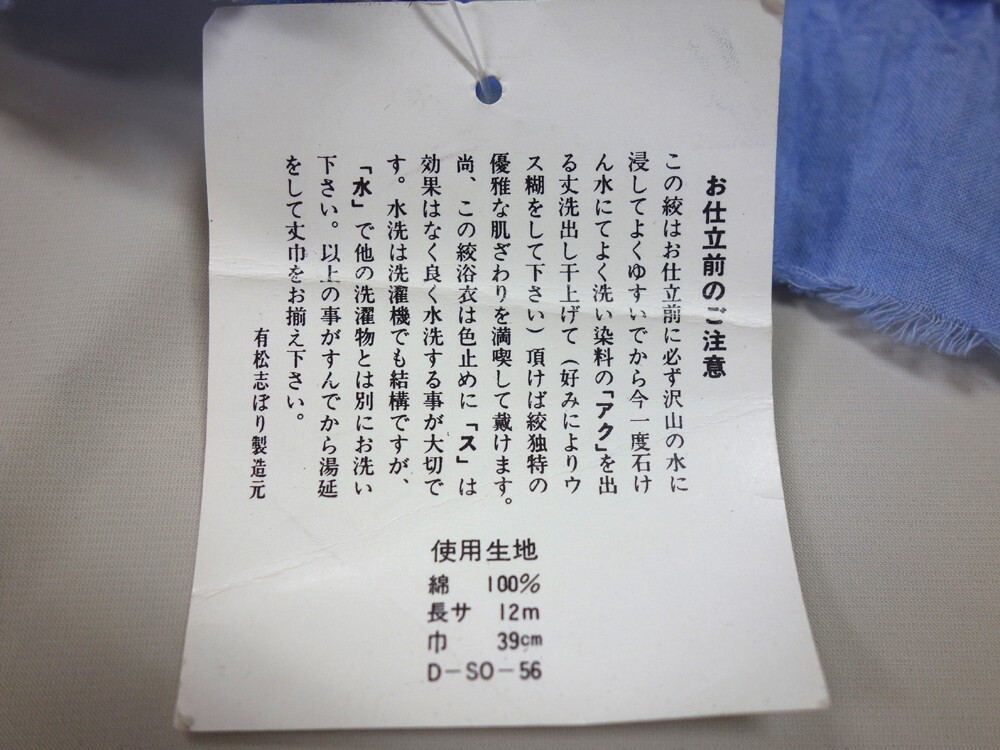 お仕立前のご注意
この絞はお仕立前に必ず沢山の水に
浸してよくゆすいでから今一度石け
ん水にてよく洗い染料の「アク」を出
る丈洗出し干上げて(好みによりウ
ス糊をして下さい)頂けば絞独特の
優雅な肌ざわりを満喫して戴けます。
尚、この絞浴衣は色止めに「ス」は
効果はなく良く水洗する事が大切で
す。水洗は洗濯機でも結構ですが、
「水」で他の洗濯物とは別にお洗い
下さい。以上の事がすんでから湯延
をして丈巾をお揃え下さい。
有松志ぼり製造元
使用生地
綿 100%
長サ 12m
巾 39cm
D-SO-56